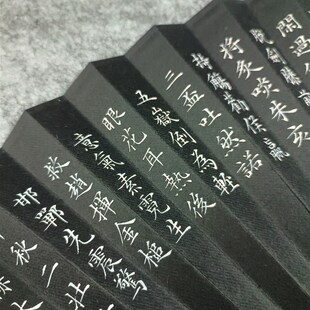 閑過
將炙啖朱亥
持觴勸侯嬴
三盃吐然諾
五嶽倒為輕
眼花耳熱後
意氣素霓生
救趙揮金槌
邯鄲先震驚
秋二壯